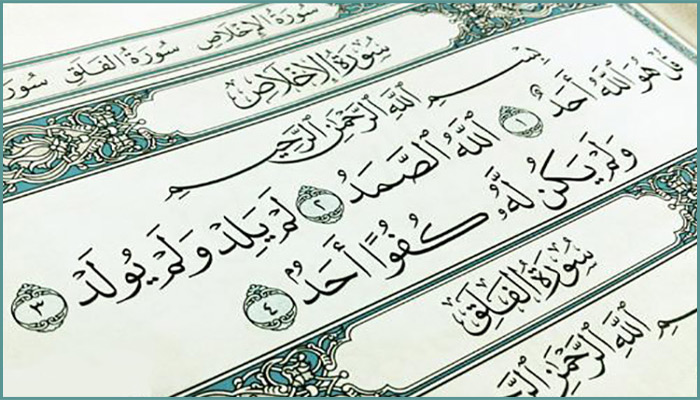 سُورَةُ الإِخْلَاصِ سُورَةُ الفَلَقِ سُورَةُ
سُورَةُ الإِخْلَاصِ
بِسْمِ ٱللَّهِ ٱلرَّحْمَٰنِ ٱلرَّحِيمِ
قُلْ هُوَ ٱللَّهُ أَحَدٌ ١ ٱللَّهُ ٱلصَّمَدُ ٢ لَمْ يَلِدْ وَلَمْ يُولَدْ ٣
وَلَمْ يَكُن لَّهُۥ كُفُوًا أَحَدٌۢ ٤
سُورَةُ الفَلَقِ
ٱللَّهِ ٱلرَّحْمَٰنِ